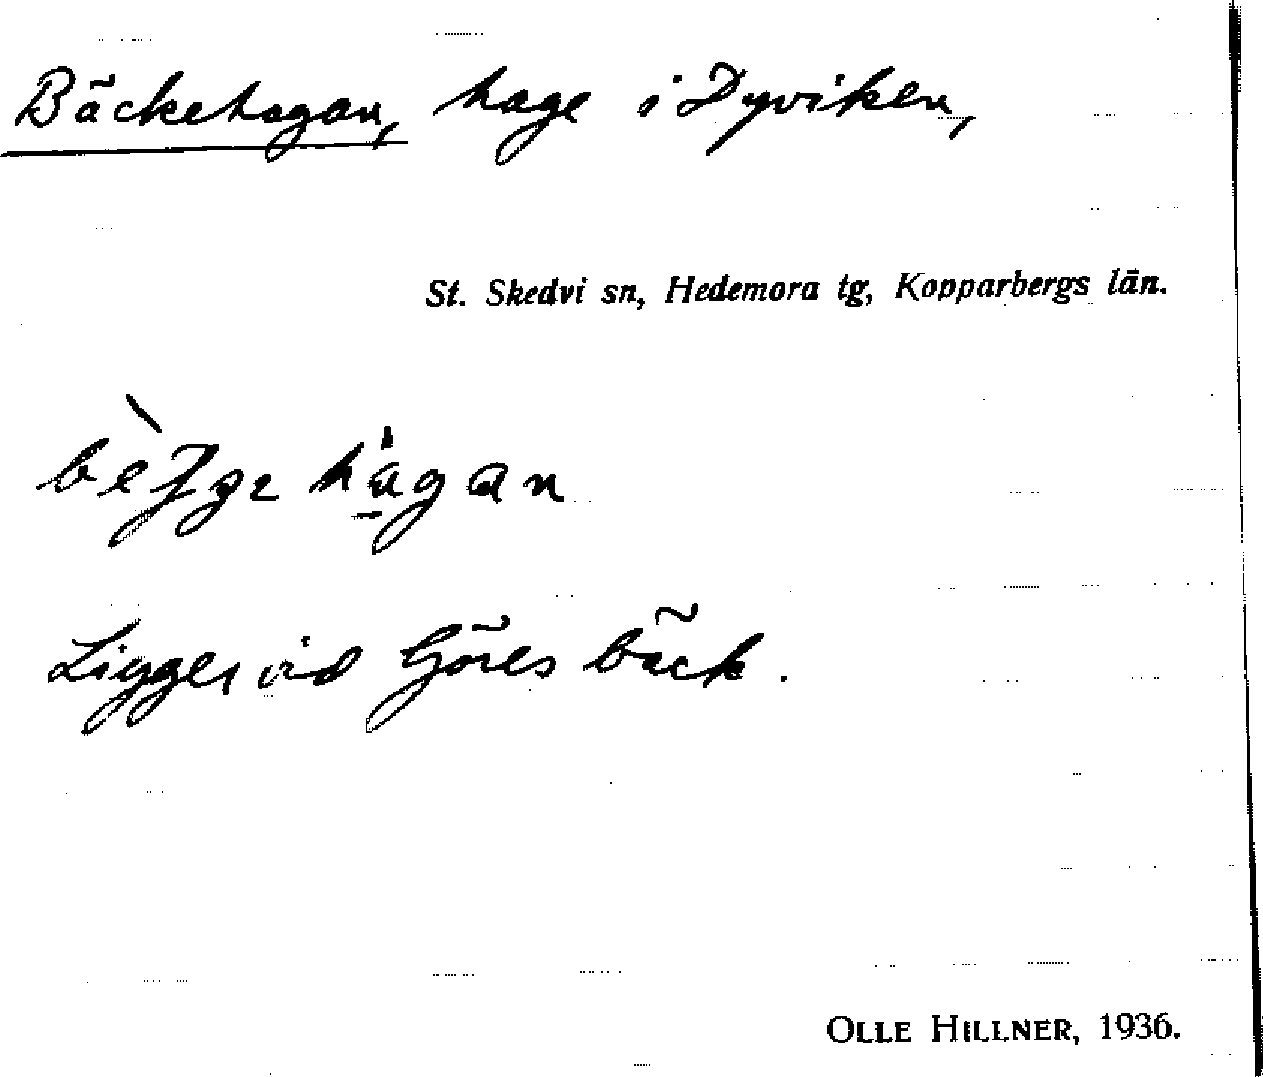 Bäckehagan, hage i Dyviken,
St. Skedvi sn, Hedemora tg, Kopparbergs län.
Ligger vid Göres bäck.
OLLE HILLNER, 1936.